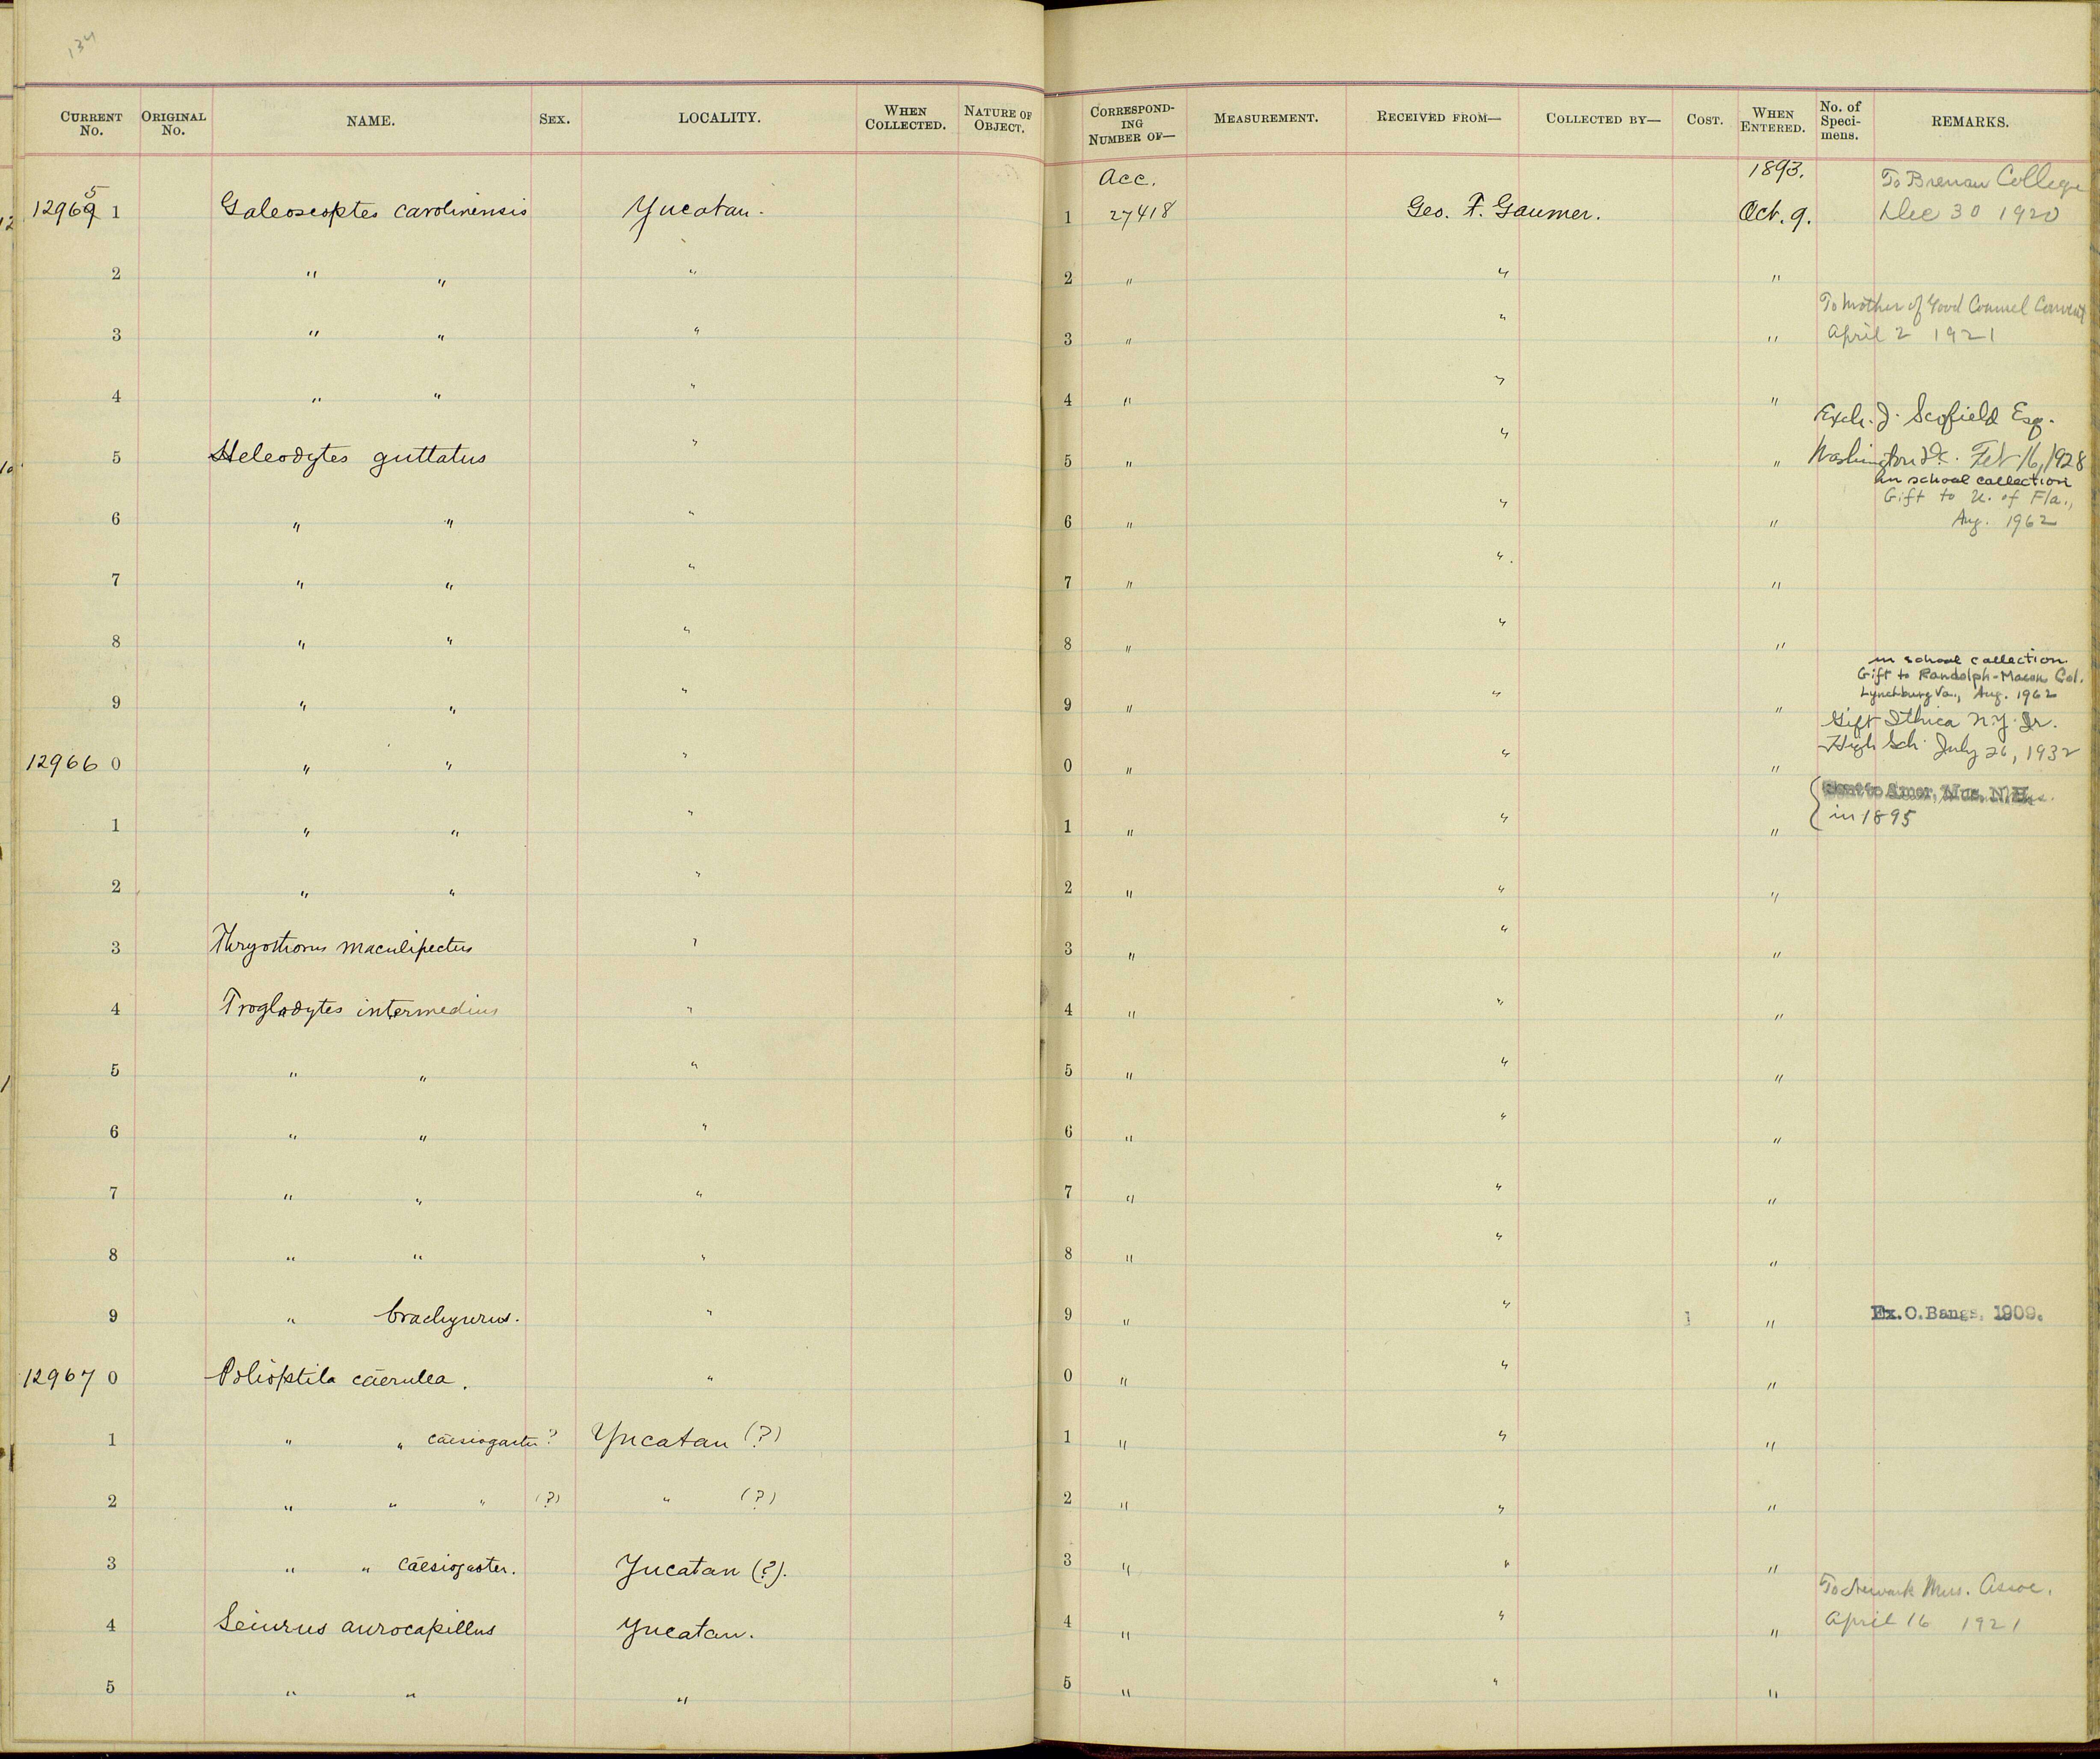 134
CURRENT No. ORIGINAL No. NAME. SEX. LOCALITY. WHEN COLLECTED. NATURE OF OBJECT. CORRESPONDING NUMBER OF— MEASUREMENT. RECEIVED FROM— COLLECTED BY— COST. WHEN ENTERED. No. of Specimens. REMARKS.
Acc. 1893. To Brenau College
129695 1 Galeoscoptes carolinensis Yucatan. 1 27418 Geo. F. Gaumer. Oct. 9. Dec 30 1920
2 " " " 2 " " "
To Mother of Good Counsel Convent
3 " " " 3 " " " April 2 1921
4 " " " 4 " " "
Exch. J. Scofield Esq.
5 Heleodytes guttatus " 5 " " " Washington D.C. Feb 16, 1928
In school collection
Gift to U. of Fla.,
6 " " " 6 " " " Aug. 1962
7 " " " 7 " " "
8 " " " 8 " " "
in school collection.
Gift to Randolph-Macon Col.
9 " " " 9 " " " Lynchburg Va., Aug. 1962
Gift Ithica N.Y. Jr.
12966 0 " " " 0 " " " High Sch. July 26, 1932
Sent to Amer. Mus. N. H.
1 " " " 1 " " " in 1895
2 " " " 2 " " "
3 Thryothorus maculipectus " 3 " " "
4 Troglodytes intermedius " 4 " " "
5 " " " 5 " " "
6 " " " 6 " " "
7 " " " 7 " " "
8 " " " 8 " " "
9 " brachyurus. " 9 " " 1 " Ex. O. Bangs. 1909.
12967 0 Polioptila cäerulea. " 0 " " "
1 " " cäesiogaster ? Yucatan (?) 1 " " "
2 " " " (?) " (?) 2 " " "
3 " " cäesiogaster. Yucatan (?). 3 " " "
To Newark Mus. Assoc.
4 Seiurus aurocapillus Yucatan. 4 " " " April 16 1921
5 " " " 5 " " "